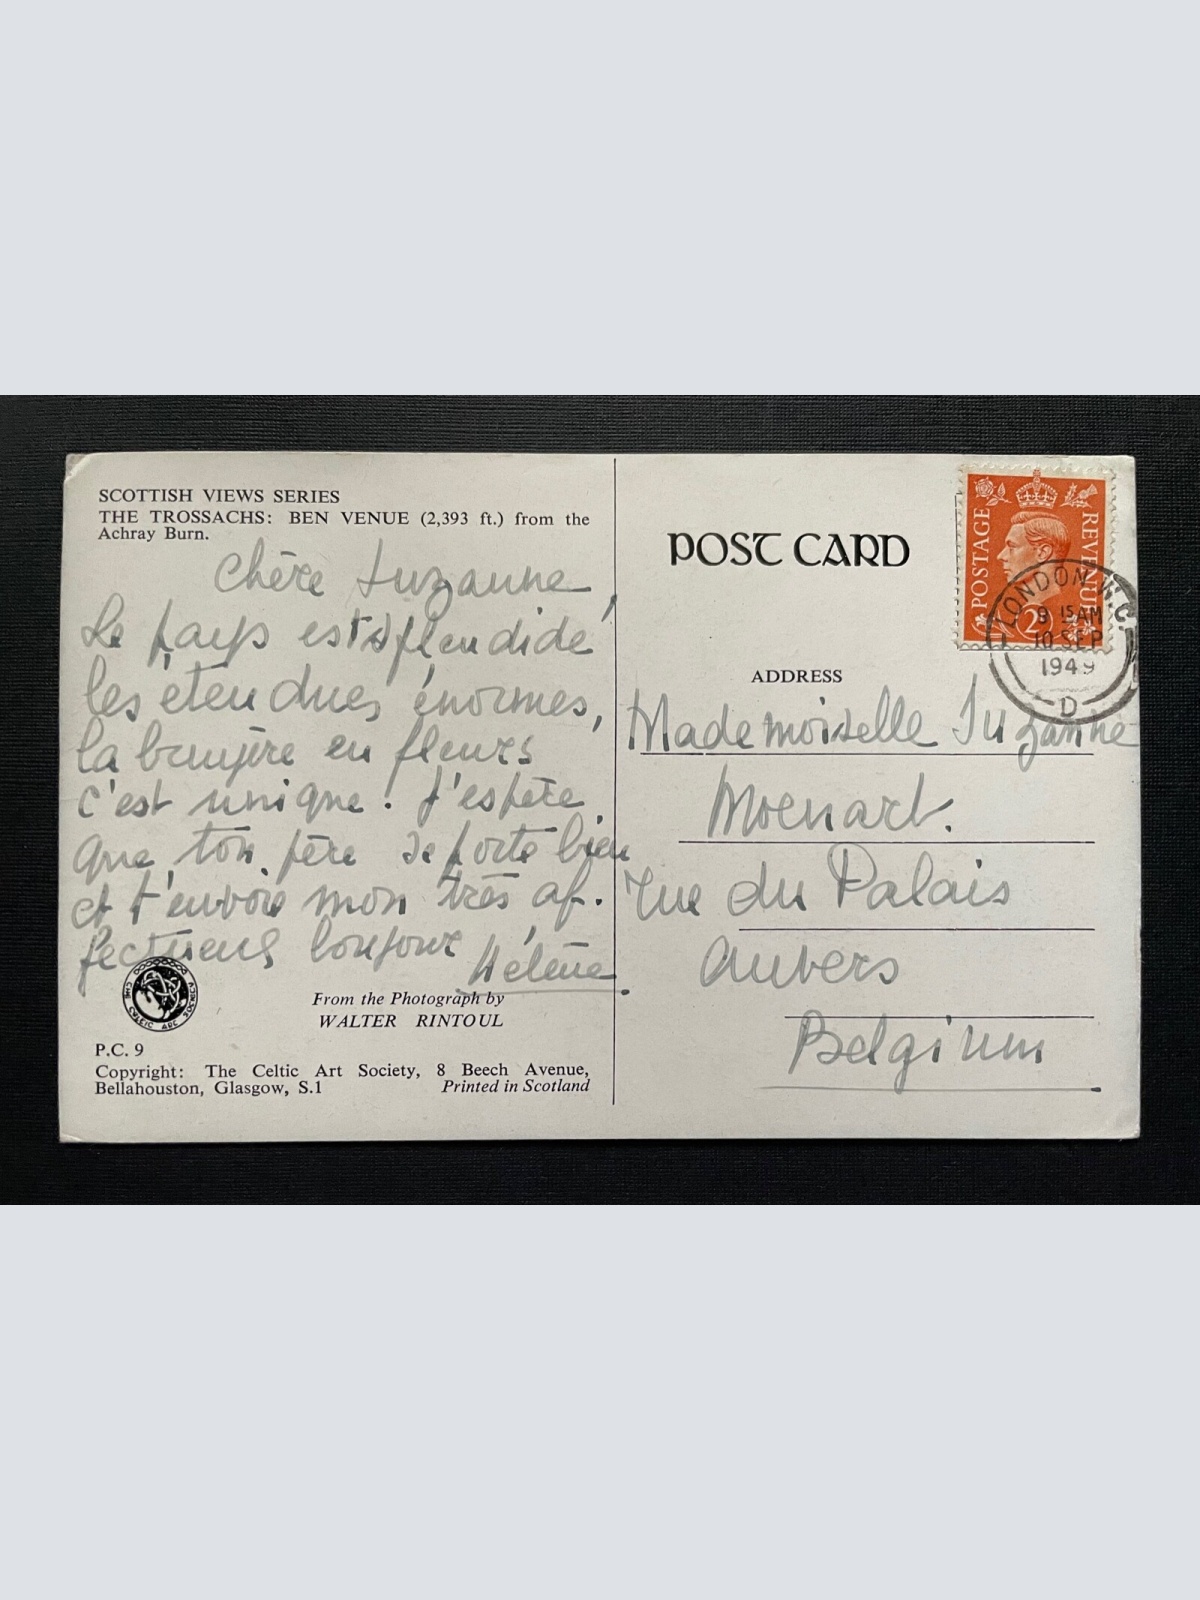 SCOTTISH VIEWS SERIES
THE TROSSACHS: BEN VENUE (2,393 ft.) from the
Achray Burn.
Chère Suzanne,
Le pays est splendide
les étendues énormes,
la bruyère en fleurs
c'est unique! J'espère
que ton père se porte bien
et t'envoie mon très af-
fectueux bonjour,
Hélène.
From the Photograph by
WALTER RINTOUL
THE CELTIC ART SOCIETY
P.C. 9
Copyright: The Celtic Art Society, 8 Beech Avenue,
Bellahouston, Glasgow, S.1
Printed in Scotland
POST CARD
POSTAGE
REVENUE
2D
LONDON W.C.
9 15 AM
10 SEP
1949
D
ADDRESS
Mademoiselle Suzanne
Moenart.
rue du Palais
Anvers
Belgium